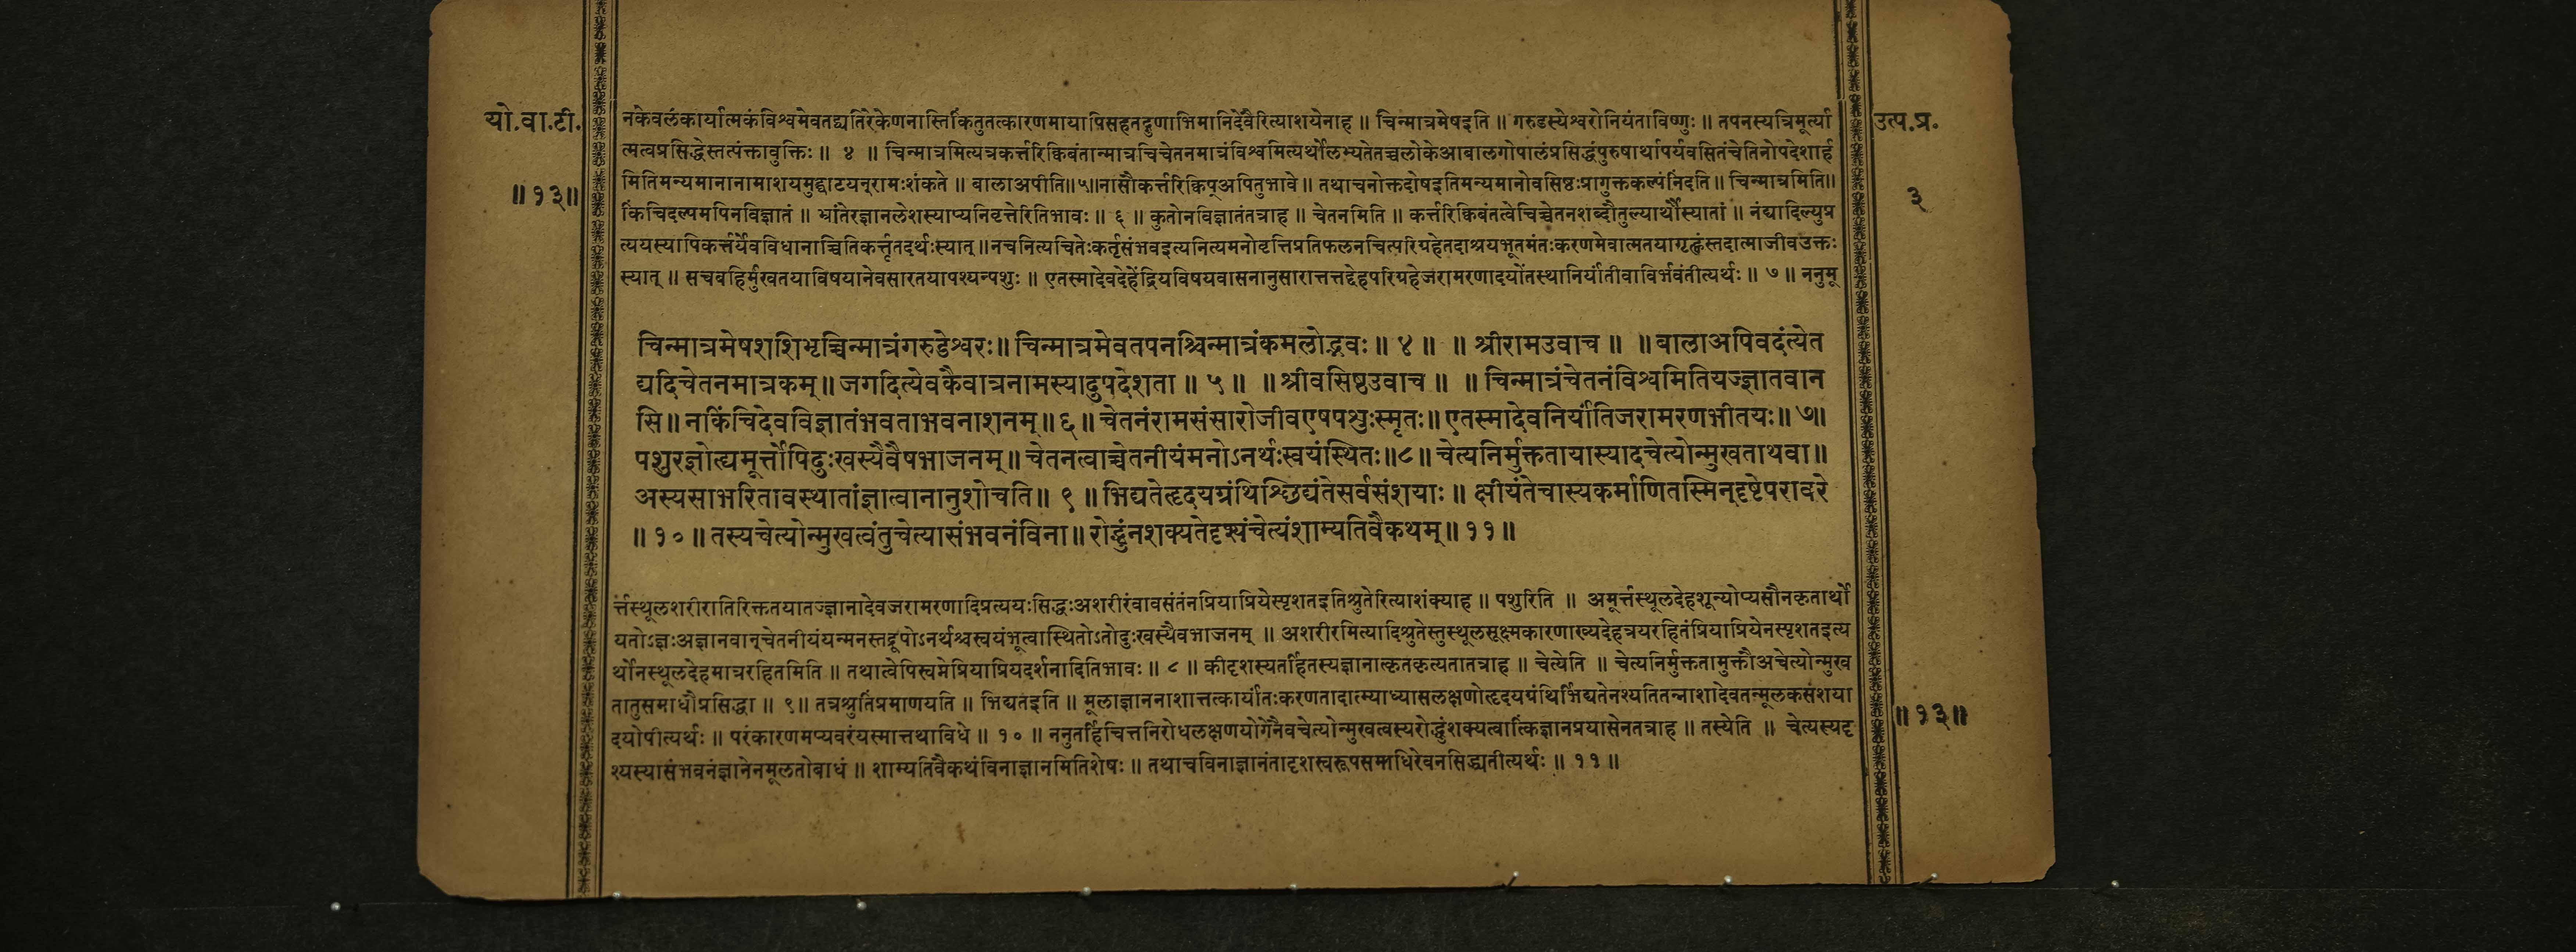 यो.वा.टी.
॥१३॥
नकेवलंकार्यात्मकंविश्वमेवतद्व्यतिरेकेणनास्तिकिंतुतत्कारणमायापिसहतद्गुणाभिमानिदेवैरित्याशयेनाह ॥ चिन्मात्रमेषइति ॥ गरुडस्येश्वरोनियंताविष्णुः ॥ तपनस्यत्रिमूर्त्या
त्मत्वप्रसिद्धेस्तत्पंक्तावुक्तिः ॥ ४ ॥ चिन्मात्रमित्यत्रकर्त्तरिक्विबंतान्मात्रचिचेतनमात्रंविश्वमित्यर्थोलभ्यतेतच्चलोकेआबालगोपालंप्रसिद्धंपुरुषार्थापर्यवसितंचेतिनोपदेशार्ह
मितिमन्यमानानामाशयमुद्घाटयन्रामःशंकते ॥ बालाअपीति॥५॥नासौकर्त्तरिक्विप्अपितुभावे ॥ तथाचनोक्तदोषइतिमन्यमानोवसिष्ठःप्रागुक्तकल्पंनिंदति ॥ चिन्मात्रमिति॥
किंचिदल्पमपिनविज्ञातं ॥ भ्रांतेरज्ञानलेशस्याप्यनिवृत्तेरितिभावः ॥ ६ ॥ कुतोनविज्ञातंतत्राह ॥ चेतनमिति ॥ कर्त्तरिक्विबंतत्वेचिच्चेतनशब्दौतुल्यार्थौस्यातां ॥ नंद्यादिल्युप्र
त्ययस्यापिकर्त्तर्येवविधानाच्चितिकर्त्तृतदर्थःस्यात् ॥नचनित्यचितेःकर्तृसंभवइत्यनित्यमनोवृत्तिप्रतिफलनचित्परिग्रहेतदाश्रयभूतमंतःकरणमेवात्मतयागृह्णंस्तदात्माजीवउक्तः
स्यात् ॥ सचबहिर्मुखतयाविषयानेवसारतयापश्यन्पशुः ॥ एतस्मादेवदेहेंद्रियविषयवासनानुसारात्तत्तद्देहपरिग्रहेजरामरणादयोंतस्थानिर्यांतीवाविर्भवंतीत्यर्थः ॥ ७ ॥ ननुमू
चिन्मात्रमेषशशिभृच्चिन्मात्रंगरुडेश्वरः॥ चिन्मात्रमेवतपनश्चिन्मात्रंकमलोद्भवः ॥ ४ ॥ ॥ श्रीरामउवाच ॥ ॥ बालाअपिवदंत्येत
द्यदिचेतनमात्रकम् ॥ जगदित्येवकैवात्रनामस्यादुपदेशता ॥ ५ ॥ ॥ श्रीवसिष्ठउवाच ॥ ॥ चिन्मात्रंचेतनंविश्वमितियज्ज्ञातवान
सि ॥ नकिंचिदेवविज्ञातंभवताभवनाशनम् ॥ ६ ॥ चेतनंरामसंसारोजीवएषपशुःस्मृतः॥ एतस्मादेवनिर्यांतिजरामरणभीतयः॥ ७॥
पशुरज्ञोह्यमूर्त्तोपिदुःखस्यैवैषभाजनम् ॥ चेतनत्वाच्चेतनीयंमनोऽनर्थःस्वयंस्थितः॥८॥ चेत्यनिर्मुक्ततायास्यादचेत्योन्मुखताथवा॥
अस्यसाभरितावस्थातांज्ञात्वानानुशोचति॥ ९ ॥ भिद्यतेहृदयग्रंथिश्छिद्यंतेसर्वसंशयाः ॥ क्षीयंतेचास्यकर्माणितस्मिन्दृष्टेपरावरे
॥ १० ॥ तस्यचेत्योन्मुखत्वंतुचेत्यासंभवनंविना ॥ रोद्धुंनशक्यतेदृश्यंचेत्यंशाम्यतिवैकथम् ॥ ११ ॥
र्त्तस्थूलशरीरातिरिक्ततयातज्ज्ञानादेवजरामरणादिप्रत्ययःसिद्धःअशरीरंवावसंतंनप्रियाप्रियेस्पृशतइतिश्रुतेरित्याशंक्याह ॥ पशुरिति ॥ अमूर्त्तस्थूलदेहशून्योप्यसौनकृतार्थो
यतोऽज्ञःअज्ञानवान्चेतनीयंयन्मनस्तद्रूपोऽनर्थश्चस्वयंभूत्वास्थितोऽतोदुःखस्यैवभाजनम् ॥ अशरीरमित्यादिश्रुतेस्तुस्थूलसूक्ष्मकारणाख्यदेहत्रयरहितंप्रियाप्रियेनस्पृशतइत्य
र्थोनस्थूलदेहमात्ररहितमिति ॥ तथात्वेपिस्वप्नेप्रियाप्रियदर्शनादितिभावः ॥ ८ ॥ कीदृशस्यतर्हितस्यज्ञानात्कृतकृत्यतातत्राह ॥ चेत्येति ॥ चेत्यनिर्मुक्ततामुक्तौअचेत्योन्मुख
तातुसमाधौप्रसिद्धा ॥ ९॥ तत्रश्रुतिंप्रमाणयति ॥ भिद्यतइति ॥ मूलाज्ञाननाशात्तत्कार्यांतःकरणतादात्म्याध्यासलक्षणोहृदयग्रंथिर्भिद्यतेनश्यतितन्नाशादेवतन्मूलकसंशया
दयोपीत्यर्थः ॥ परंकारणमप्यवरंयस्मात्तथाविधे ॥ १० ॥ ननुतर्हिचित्तनिरोधलक्षणयोगेनैवचेत्योन्मुखत्वस्यरोद्धुंशक्यत्वात्किंज्ञानप्रयासेनतत्राह ॥ तस्येति ॥ चेत्यस्यदृ
श्यस्यासंभवनंज्ञानेनमूलतोबाधं ॥ शाम्यतिवैकथंविनाज्ञानमितिशेषः ॥ तथाचविनाज्ञानंतादृशस्वरूपसमाधिरेवनसिद्ध्यतीत्यर्थः ॥ ११ ॥
उत्प.प्र.
३
॥१३॥